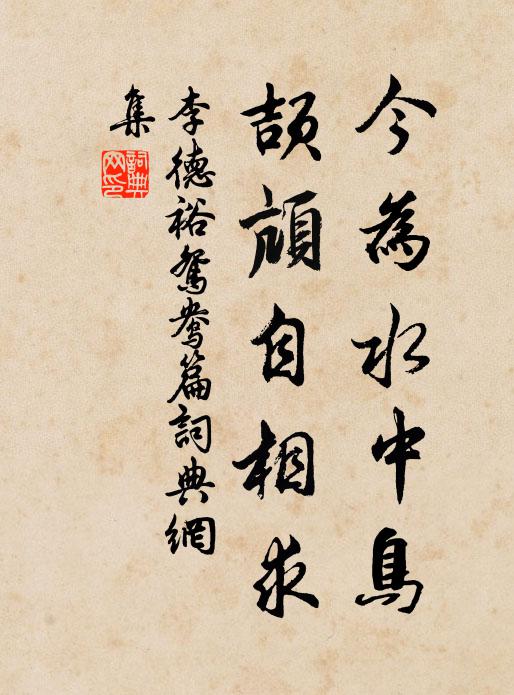 今為水中鳥
頡頏自相求
李德裕鴛鴦篇詞典網
集
詞典網印